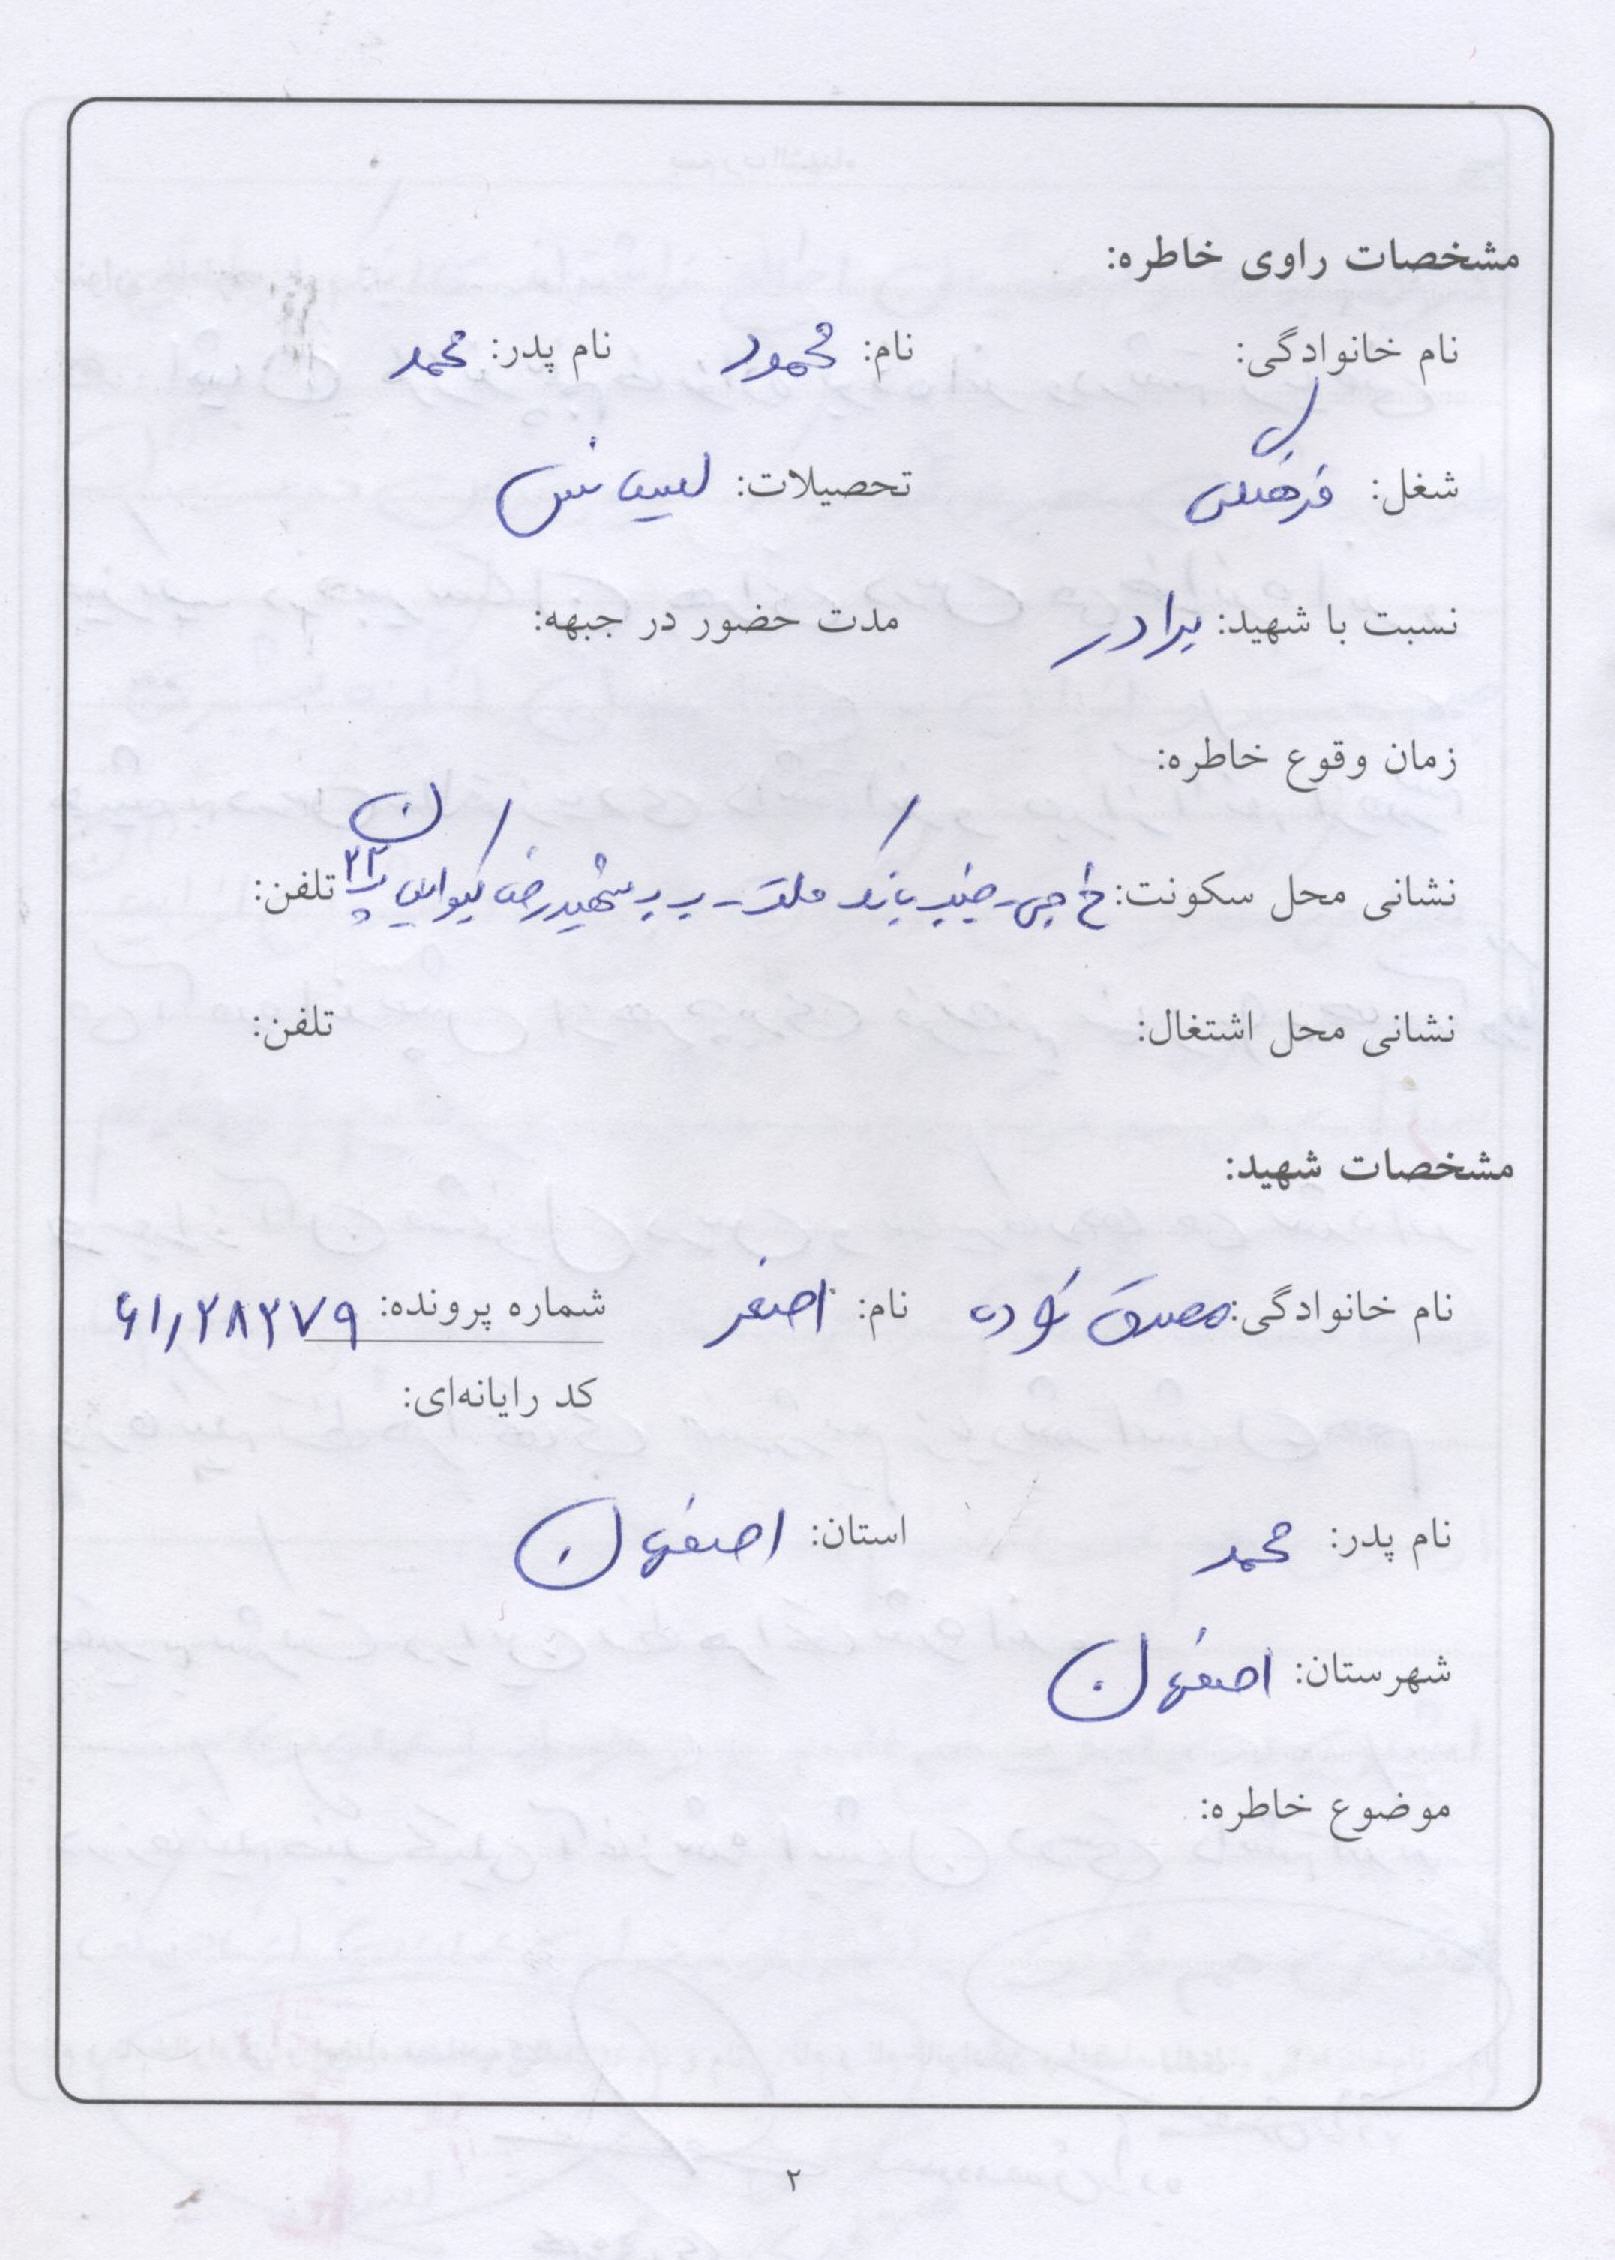 مشخصات راوی خاطره:
نام خانوادگی: نام: محمود نام پدر: محمد
شغل: فرهنگی تحصیلات: لیسانس
نسبت با شهید: برادر مدت حضور در جبهه:
زمان وقوع خاطره:
نشانی محل سکونت: خ جی - جنب بانک ملت - ب ب شهید رضا کیوانی پ ۲۲ تلفن:
نشانی محل اشتغال: تلفن:
مشخصات شهید:
نام خانوادگی: مصدق نام: اصغر شماره پرونده: ۶۱/۲۸۲۷۹
کد رایانه‌ای:
نام پدر: محمد استان: اصفهان
شهرستان: اصفهان
موضوع خاطره:
۲